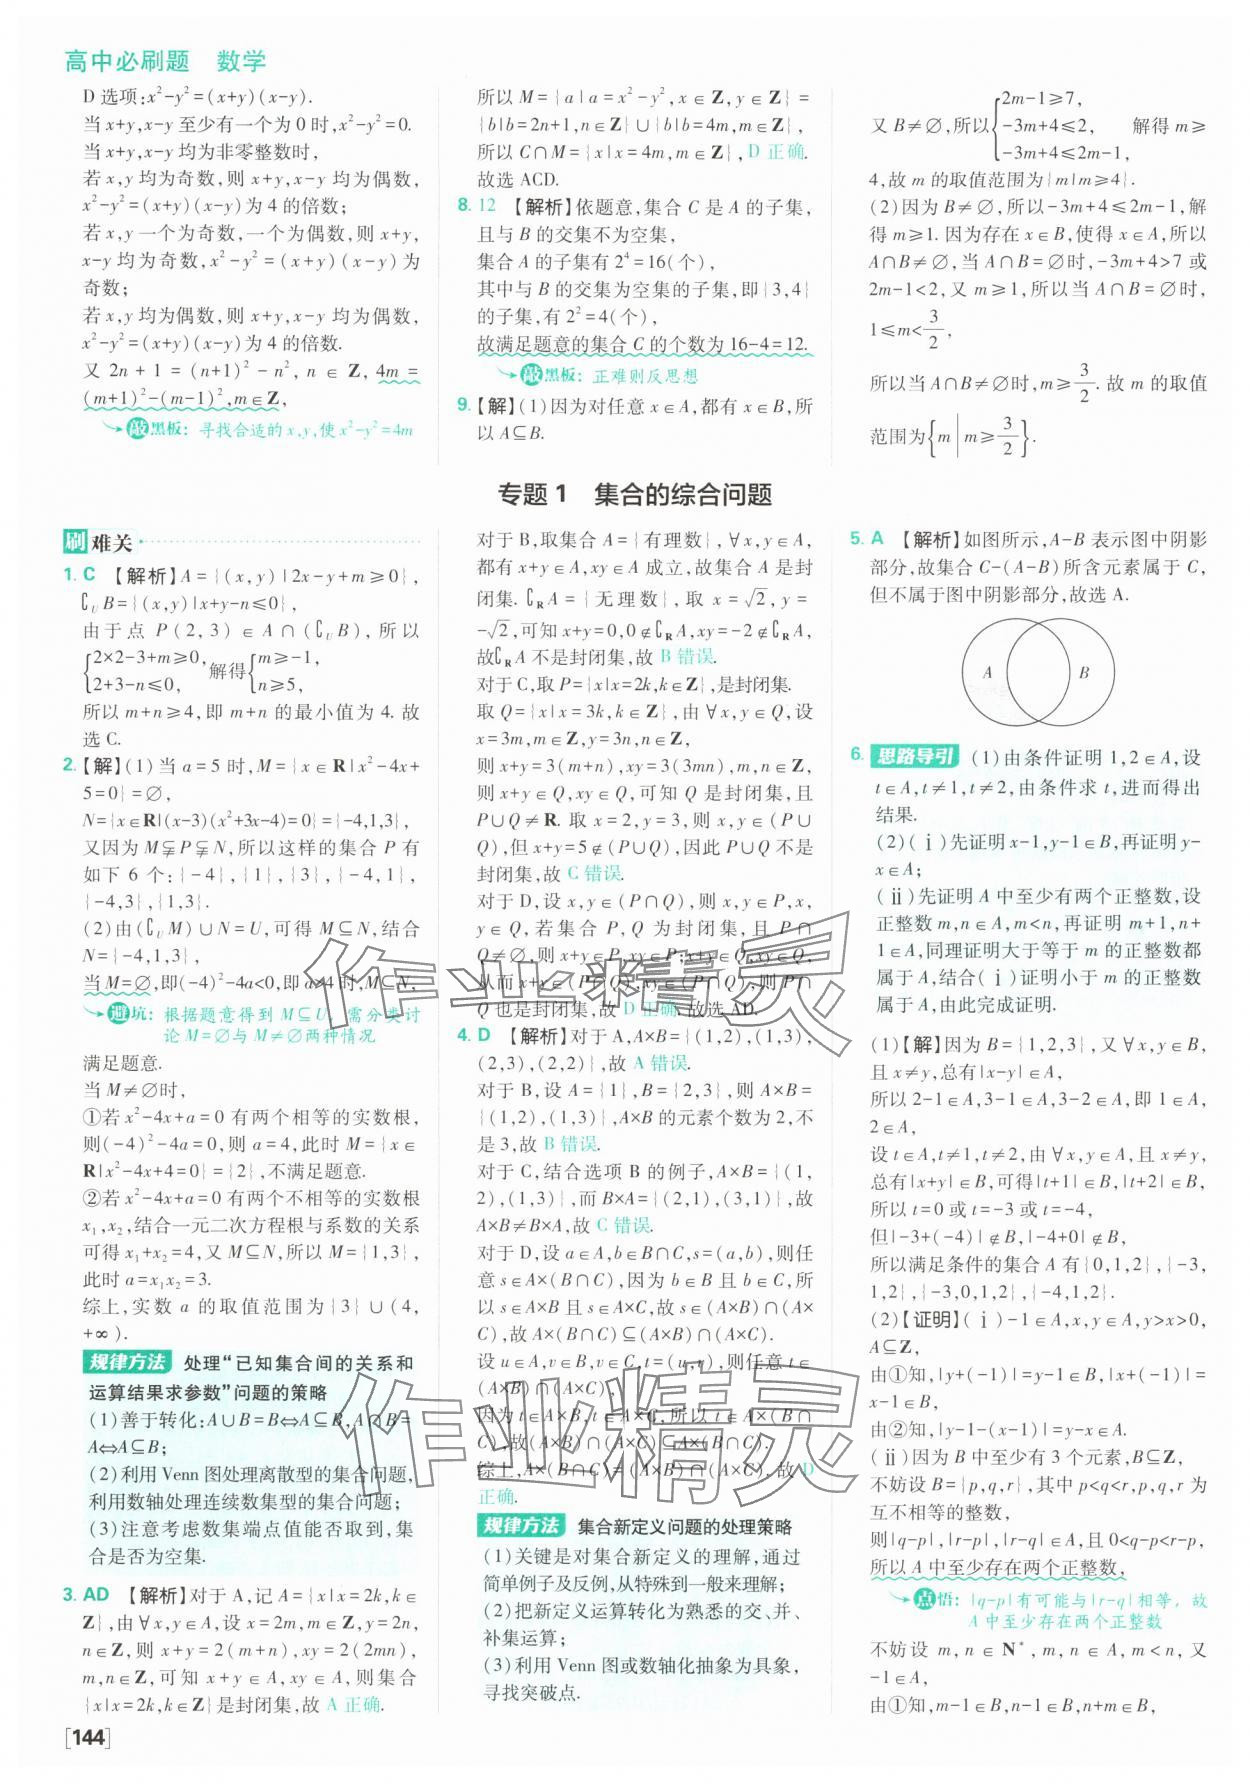 高中必刷题 数学
D 选项:x²-y²=(x+y)(x-y).
当 x+y,x-y 至少有一个为 0 时,x²-y²=0.
当 x+y,x-y 均为非零整数时,
若 x,y 均为奇数,则 x+y,x-y 均为偶数,
x²-y²=(x+y)(x-y)为 4 的倍数;
若 x,y 一个为奇数,一个为偶数,则 x+y,
x-y 均为奇数,x²-y²=(x+y)(x-y)为
奇数;
若 x,y 均为偶数,则 x+y,x-y 均为偶数,
x²-y²=(x+y)(x-y)为 4 的倍数.
又 2n+1=(n+1)²-n²,n∈Z,4m=
(m+1)²-(m-1)²,m∈Z,
敲黑板:寻找合适的 x,y,使 x²-y²=4m
所以 M={a|a=x²-y²,x∈Z,y∈Z}=
{b|b=2n+1,n∈Z}∪{b|b=4m,m∈Z},
所以 C∩M={x|x=4m,m∈Z},D 正确.
故选 ACD.
8. 12 【解析】依题意,集合 C 是 A 的子集,
且与 B 的交集不为空集,
集合 A 的子集有 2⁴=16(个),
其中与 B 的交集为空集的子集,即{3,4}
的子集,有 2²=4(个),
故满足题意的集合 C 的个数为 16-4=12.
敲黑板:正难则反思想
9.【解】(1)因为对任意 x∈A,都有 x∈B,所
以 A⊆B.
又 B≠∅,所以{2m-1≥7, -3m+4≤2, -3m+4≤2m-1, 解得 m≥
4,故 m 的取值范围为{m|m≥4}.
(2)因为 B≠∅,所以-3m+4≤2m-1,解
得 m≥1.因为存在 x∈B,使得 x∈A,所以
A∩B≠∅,当 A∩B=∅时,-3m+4>7 或
2m-1<2,又 m≥1,所以当 A∩B=∅时,
1≤m<3/2,
所以当 A∩B≠∅时,m≥3/2.故 m 的取值
范围为{m|m≥3/2}.
专题 1 集合的综合问题
刷难关
1. C 【解析】A={(x,y)|2x-y+m≥0},
∁UB={(x,y)|x+y-n≤0},
由于点 P(2,3)∈A∩(∁UB),所以
{2×2-3+m≥0, 2+3-n≤0, 解得{m≥-1, n≥5,
所以 m+n≥4,即 m+n 的最小值为 4.故
选 C.
2.【解】(1)当 a=5 时,M={x∈R|x²-4x+
5=0}=∅,
N={x∈R|(x-3)(x²+3x-4)=0}={-4,1,3},
又因为 M⫋P⫋N,所以这样的集合 P 有
如下 6 个:{-4},{1},{3},{-4,1},
{-4,3},{1,3}.
(2)由(∁UM)∪N=U,可得 M⊆N,结合
N={-4,1,3},
当 M=∅,即(-4)²-4a<0,即 a>4 时,M⊆N,
避坑:根据题意得到 M⊆U,需分类讨
论 M=∅与 M≠∅两种情况
满足题意.
当 M≠∅时,
①若 x²-4x+a=0 有两个相等的实数根,
则(-4)²-4a=0,则 a=4,此时 M={x∈
R|x²-4x+4=0}={2},不满足题意.
②若 x²-4x+a=0 有两个不相等的实数根
x₁,x₂,结合一元二次方程根与系数的关系
可得 x₁+x₂=4,又 M⊆N,所以 M={1,3},
此时 a=x₁x₂=3.
综上,实数 a 的取值范围为{3}∪(4,
+∞).
规律方法 处理“已知集合间的关系和
运算结果求参数”问题的策略
(1)善于转化:A∪B=B⇔A⊆B,A∩B=
A⇔A⊆B;
(2)利用 Venn 图处理离散型的集合问题,
利用数轴处理连续数集型的集合问题;
(3)注意考虑数集端点值能否取到,集
合是否为空集.
3. AD 【解析】对于 A,记 A={x|x=2k,k∈
Z},由∀x,y∈A,设 x=2m,m∈Z,y=2n,
n∈Z,则 x+y=2(m+n),xy=2(2mn),
m,n∈Z,可知 x+y∈A,xy∈A,则集合
{x|x=2k,k∈Z}是封闭集,故 A 正确.
对于 B,取集合 A={有理数},∀x,y∈A,
都有 x+y∈A,xy∈A 成立,故集合 A 是封
闭集.∁RA={无理数},取 x=√2,y=
-√2,可知 x+y=0,0∉∁RA,xy=-2∉∁RA,
故∁RA 不是封闭集,故 B 错误.
对于 C,取 P={x|x=2k,k∈Z},是封闭集.
取 Q={x|x=3k,k∈Z},由∀x,y∈Q,设
x=3m,m∈Z,y=3n,n∈Z,
则 x+y=3(m+n),xy=3(3mn),m,n∈Z,
则 x+y∈Q,xy∈Q,可知 Q 是封闭集,且
P∪Q≠R.取 x=2,y=3,则 x,y∈(P∪
Q),但 x+y=5∉(P∪Q),因此 P∪Q 不是
封闭集,故 C 错误.
对于 D,设 x,y∈(P∩Q),则 x,y∈P,且
x,y∈Q,若集合 P,Q 为封闭集,且 P∩
Q≠∅,则 x+y∈P,xy∈P,x+y∈Q,xy∈Q,
从而 x+y∈(P∩Q),xy∈(P∩Q),故 P∩
Q 也是封闭集,故 D 正确.故选 AD.
4. D 【解析】对于 A,A×B={(1,2),(1,3),
(2,3),(2,2)},故 A 错误.
对于 B,设 A={1},B={2,3},则 A×B=
{(1,2),(1,3)},A×B 的元素个数为 2,不
是 3,故 B 错误.
对于 C,结合选项 B 的例子,A×B={(1,
2),(1,3)},而 B×A={(2,1),(3,1)},故
A×B≠B×A,故 C 错误.
对于 D,设 a∈A,b∈B∩C,s=(a,b),则任
意 s∈A×(B∩C),因为 b∈B 且 b∈C,所
以 s∈A×B 且 s∈A×C,故 s∈(A×B)∩(A×
C),故 A×(B∩C)⊆(A×B)∩(A×C).
设 u∈A,v∈B,v∈C,t=(u,v),则任意 t∈
(A×B)∩(A×C),
因为 t∈A×B,t∈A×C,所以 t∈A×(B∩
C),故(A×B)∩(A×C)⊆A×(B∩C).
综上,A×(B∩C)=(A×B)∩(A×C).故 D
正确.
规律方法 集合新定义问题的处理策略
(1)关键是对集合新定义的理解,通过
简单例子及反例,从特殊到一般来理解;
(2)把新定义运算转化为熟悉的交、并、
补集运算;
(3)利用 Venn 图或数轴化抽象为具象,
寻找突破点.
5. A 【解析】如图所示,A-B 表示图中阴影
部分,故集合 C-(A-B)所含元素属于 C,
但不属于图中阴影部分,故选 A.
A B
6. 思路导引 (1)由条件证明 1,2∈A,设
t∈A,t≠1,t≠2,由条件求 t,进而得出
结果.
(2)(ⅰ)先证明 x-1,y-1∈B,再证明 y-
x∈A;
(ⅱ)先证明 A 中至少有两个正整数,设
正整数 m,n∈A,m<n,再证明 m+1,n+
1∈A,同理证明大于等于 m 的正整数都
属于 A,结合(ⅰ)证明小于 m 的正整数
属于 A,由此完成证明.
(1)【解】因为 B={1,2,3},又∀x,y∈B,
且 x≠y,总有|x-y|∈A,
所以 2-1∈A,3-1∈A,3-2∈A,即 1∈A,
2∈A,
设 t∈A,t≠1,t≠2,由∀x,y∈A,且 x≠y,
总有|x+y|∈B,可得|t+1|∈B,|t+2|∈B,
所以 t=0 或 t=-3 或 t=-4,
但|-3+(-4)|∉B,|-4+0|∉B,
所以满足条件的集合 A 有{0,1,2},{-3,
1,2},{-3,0,1,2},{-4,1,2}.
(2)【证明】(ⅰ)-1∈A,x,y∈A,y>x>0,
A⊆Z,
由①知,|y+(-1)|=y-1∈B,|x+(-1)|=
x-1∈B,
由②知,|y-1-(x-1)|=y-x∈A.
(ⅱ)因为 B 中至少有 3 个元素,B⊆Z,
不妨设 B={p,q,r},其中 p<q<r,p,q,r 为
互不相等的整数,
则|q-p|,|r-p|,|r-q|∈A,且 0<q-p<r-p,
所以 A 中至少存在两个正整数,
点悟:|q-p|有可能与|r-q|相等,故
A 中至少存在两个正整数
不妨设 m,n∈N*,m,n∈A,m<n,又
-1∈A,
由①知,m-1∈B,n-1∈B,n+m∈B,
[144]
作业精灵
作业精灵